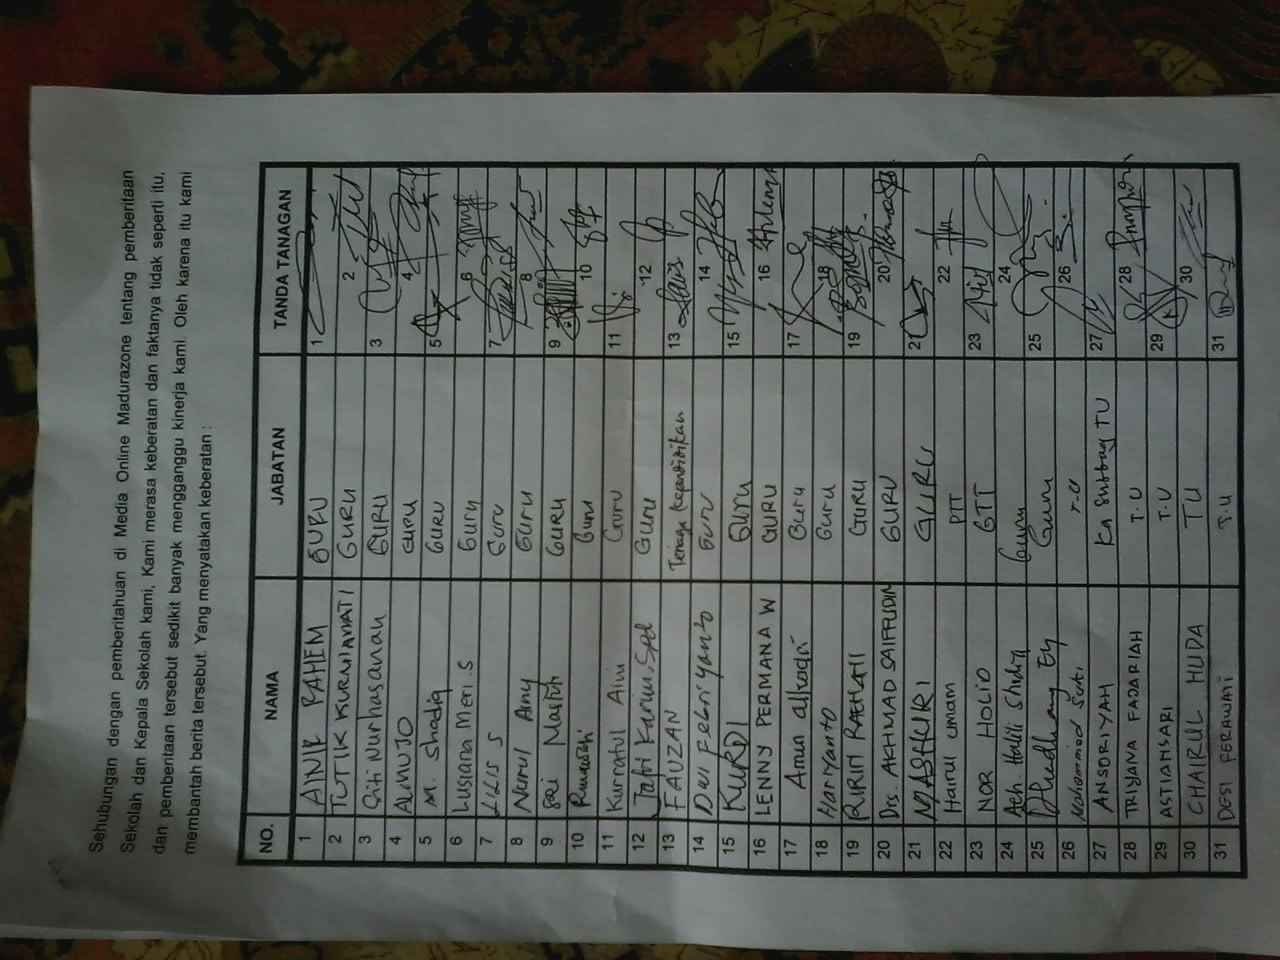 Sehubungan dengan pemberitahuan di Media Online Madurazone tentang pemberitaan
Sekolah dan Kepala Sekolah kami, Kami merasa keberatan dan faktanya tidak seperti itu,
dan pemberitaan tersebut sedikit banyak mengganggu kinerja kami. Oleh karena itu kami
membantah berita tersebut. Yang menyatakan keberatan :
NO. NAMA JABATAN TANDA TANAGAN
1 AINIR RAHEM GURU 1
2 TUTIK KURNIAWATI GURU 2
3 Siti Nurhasanah GURU 3
4 ALMUJO GURU 4
5 M. Shodiq GURU 5
6 Lusiana Meri. S Guru 6
7 LILIS S Guru 7
8 Nurul Ainy Guru 8
9 Sri GURU 9
10 Guru 10
11 Kurratul Aini Guru 11
12 Karim. Spd Guru 12
13 FAUZAN Tenaga Kependidikan 13
14 Dwi Febriyanto Guru 14
15 KURDI Guru 15
16 LENNY PERMANA W GURU 16
17 Amin alkadri Guru 17
18 Hariyanto Guru 18
19 RIRIN RAEHATI GURU 19
20 Drs. AKHMAD SAIFUDIN GURU 20
21 MASHURI GURU 21
22 Hairul umam PTT 22
23 NOR HOLID GTT 23
24 Ach. Guru 24
25 Guru 25
26 Mohammad T.U 26
27 ANSORIYAH Ka Subbag TU 27
28 TRIJANA FAJARIAH T.U 28
29 ASTIANSARI T.U 29
30 CHAIRUL HUDA TU 30
31 DESI PERAWATI T.U 31